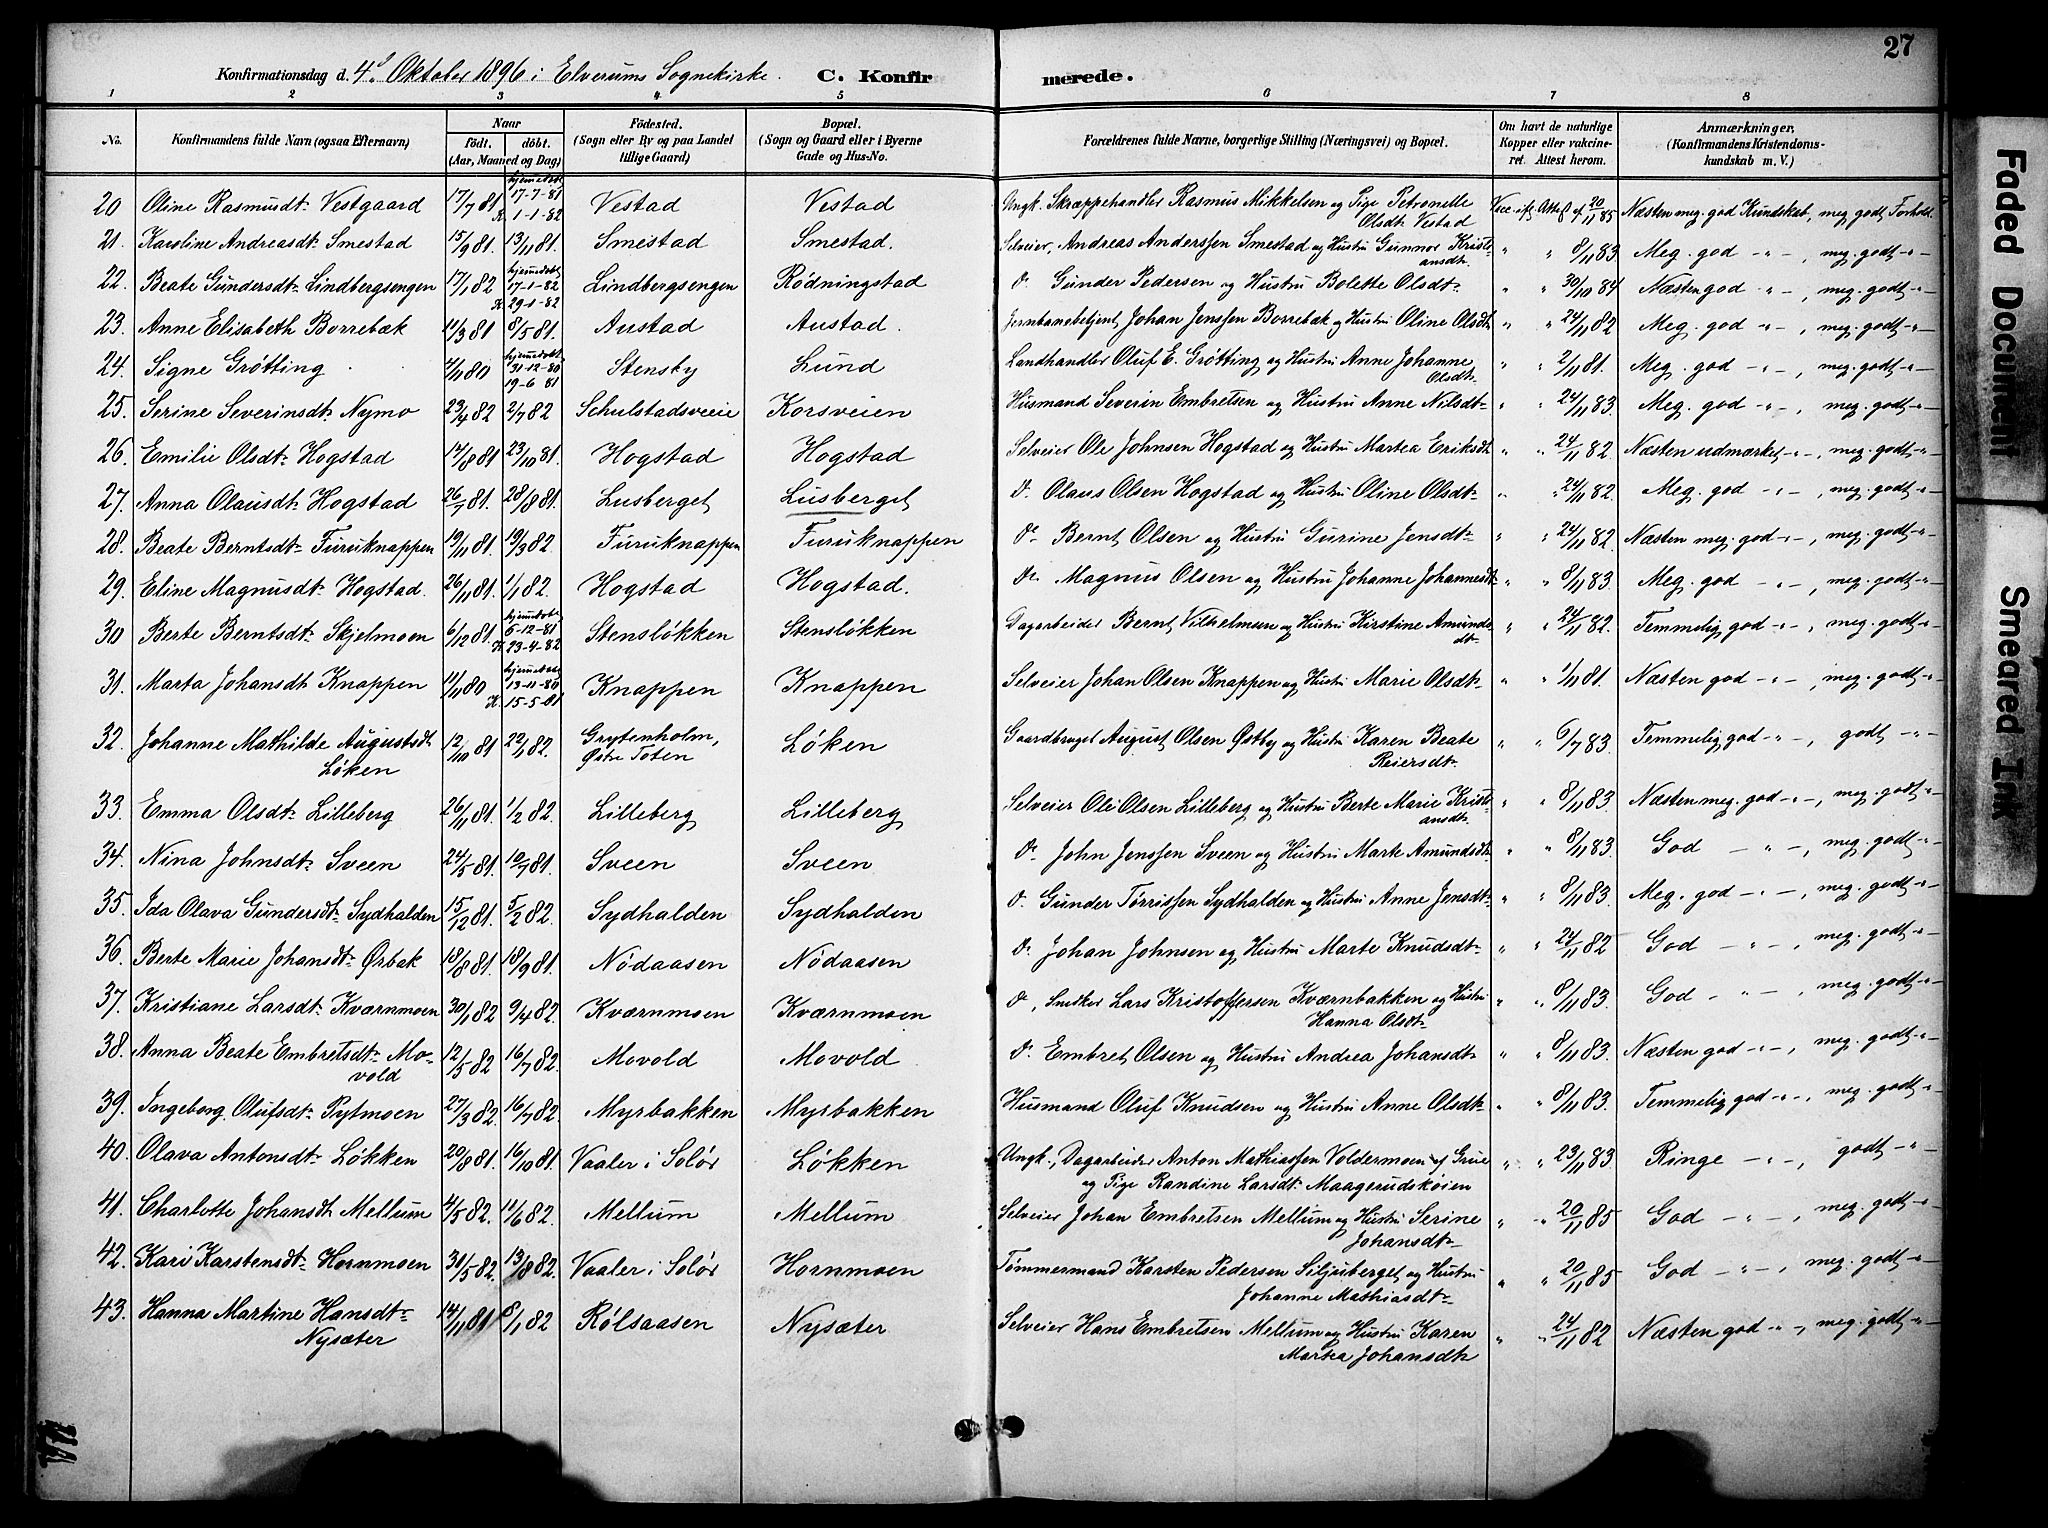 27
Konfirmationsdag d. 4de Oktober 1896 i Elverums Sognekirke. C. Konfirmerede.
1 2 3 4 5 6 7 8
No. Konfirmandens fulde Navn (ogsaa Efternavn) Naar födt. döbt. (Aar, Maaned og Dag) Födested. (Sogn eller By og paa Landet tillige Gaard) Bopæl. (Sogn og Gaard eller i Byerne Gade og Hus-No. Forældrenes fulde Navne, borgerlige Stilling (Næringsvei) og Bopæl. Om havt de naturlige Kopper eller vakcineret. Attest herom. Anmærkninger. (Konfirmandens Kristendomskundskab m. V.)
20 Oline Rasmusdt. Vestgaard 17/7 81 hjemmedøbt 17-7-81 K. 1-1-82 Vestad Vestad Ungk. Skræppehandler Rasmus Mikkelsen og Pige Petronelle Olsdt. Vestad Vacc. ift. Attest af 20/11 85 Næsten meg. god Kundskab, meg. godt Forhold
21. Karoline Andreasdt. Smestad 15/9 81. 13/11 81. Smestad Smestad. Selveier, Andreas Anderssen Smestad og Hustru Gunnor Kristiansdt. " " 8/11 83 Meg. god -"-, meg. godt -"-
22. Beate Gundersdt. Lindbergsengen 17/1 82 hjemmedøbt 17-1-82 K. 29-1-82 Lindbergsengen Rødningstad Do. Gunder Pedersen og Hustru Bolette Olsdt. " " 30/10 84 Næsten god -"-, meg. godt -"-
23. Anne Elisabeth Borrebæk 11/3 81 8/5 81. Austad Austad. Jernbanebetjent Johan Jenssen Borrebæk og Hustru Oline Olsdt. " " 24/11 82 Meg. god -"-, meg. godt -"-
24. Signe Grøtting 4/11 80 hjemmedøbt 31-12-80 19-6 81 Stensby Lund Landhandler Oluf E. Grøtting og Hustru Anne Johanne Olsdt. " " 2/11 81. Meg. god -"-, meg. godt -"-
25. Serine Severinsdt. Nymo 23/4 82 2/7 82 Schulstadsveie Korsveien Husmand Severin Embretsen og Hustru Anne Nilsdt. " " 24/11 83. Meg. god -"-, meg. godt -"-
26. Emilie Olsdt. Hogstad 14/8 81 23/10 81. Hogstad Hogstad Selveier Ole Johnsen Hogstad og Hustru Martea Eriksdt. " " 24/11 82. Næsten udmærket -"-, meg. godt -"-
27. Anna Olausdt. Hogstad 26/7 81. 28/8 81. Lusberget Lusberget Do. Olaus Olsen Hogstad og Hustru Oline Olsdt. " " 24/11 82. Meg. god -"-, meg. godt -"-
28. Beate Berntsdt. Furuknappen 19/11 81. 19/3 82. Furuknappen Furuknappen Do. Bernt Olsen og Hustru Gurine Jensdt. " " 24/11 82. Næsten meg. god -"-, meg. godt -"-
29. Eline Magnusdt. Hogstad. 26/11 81. 1/1 82. Hogstad Hogstad. Do. Magnus Olsen og Hustru Johanne Johannesdt. " " 8/11 83 Meg. god -"-, meg. godt -"-
30 Berte Berntsdt. Skjelmoen 6/12 81. hjemmedøbt 6-12-81 K. 23-4-82 Stensløkken Stensløkken Dagarbeider Bernt Vilhelmsen og Hustru Kirstine Amundsdt. " " 24/11 82. Temmelig god -"-, meg. godt -"-
31. Marta Johansdt. Knappen 11/11 80 hjemmedøbt 13-11-80 K. 15-5-81 Knappen Knappen Selveier Johan Olsen Knappen og Hustru Marie Olsdt. " " 1/11 81. Næsten god -"-, meg. godt -"-
32. Johanne Mathilde Augustsdt. Løken 12/10 81 22/1 82. Grytenholm, Østre Toten Løken Gaardbruger August Olsen Østby og Hustru Karen Beate Reiersdt. " " 6/7 83. Temmelig god -"-, godt -"-
33. Emma Olsdt. Lilleberg 26/11 81. 1/2 82. Lilleberg Lilleberg Selveier Ole Olsen Lilleberg og Hustru Berte Marie Kristiansdt. " " 8/11 83 Næsten meg. god -"-, meg. godt -"-
34. Nina Johnsdt. Sveen 24/5 81. 10/7 81. Sveen Sveen Do. John Jenssen Sveen og Hustru Marte Amundsdt. " " 8/11 83. God -"-, meg. godt -"-
35. Ida Olava Gundersdt. Sydhalden 15/12 81. 5/2 82 Sydhalden Sydhalden Do. Gunder Tørrissen Sydhalden og Hustru Anne Jensdt. " " 8/11 83. Meg. god -"-, meg. godt -"-
36. Berte Marie Johansdt. Ørbak 18/8 81. 18/9 81. Nødaasen Nødaasen Do. Johan Johnsen og Hustru Marte Knudsdt. " " 24/11 82 God -"-, meg. godt -"-
37. Kristiane Larsdt. Kværnmoen 30/1 82 9/4 82. Kværnmoen Kværnmoen Do, Snedker Lars Kristoffersen Kværnbakken og Hustru Hanna Olsdt. " " 8/11 83. God -"-, meg. godt -"-
38. Anna Beate Embretsdt. Movold 12/5 82 16/7 82. Movold Movold Do. Embret Olsen og Hustru Andrea Johansdt. " " 8/11 83. Næsten god -"-, meg. godt -"-
39. Ingeborg Olufsdt. Rytmoen 27/3 82. 16/7 82. Myrbakken Myrbakken Husmand Oluf Knudsen og Hustru Anne Olsdt. " " 8/11 83. Temmelig god -"-, meg. godt -"-
40. Olava Antonsdt. Løkken 20/8 81. 16/10 81. Vaaler i Solør Løkken Ungk., Dagarbeider Anton Mathiassen Voldermoen af Grue og Pige Randine Larsdt. Maagerudskøien " " 23/11 83 Ringe -"-, godt -"-
41. Charlotte Johansdt. Mellum 4/5 82. 11/6 82. Mellum Mellum Selveier Johan Embretsen Mellum og Hustru Serine Johansdt. " " 20/11 85 God -"-, meg. godt -"-
42. Kari Karstensdt. Hornmoen 30/5 82. 13/8 82. Vaaler i Solør Hornmoen Tømmermand Karsten Pedersen Siljuberget og Hustru Johanne Mathiasdt. " " 20/11 85. God -"-, meg. godt -"-
43. Hanna Martine Hansdt. Nysæter 14/11 81 8/1 82 Rølsaasen Nysæter Selveier Hans Embretsen Mellum og Hustru Karen Martea Johansdt. " " 24/11 82 Næsten god -"-, meg. godt -"-
Faded Document
Smeared Ink